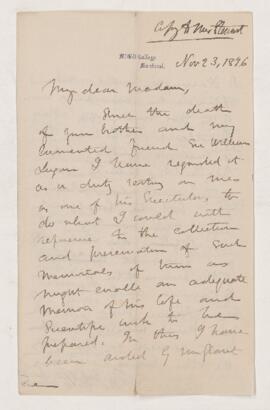 Copy to Mrs Stewart
McGill College
Montreal.
Nov 23, 1876
My dear Madam,
Since the death
of your brother and my
lamented friend Sir William
Logan I have regarded it
as a duty resting on me
as one of his Executors, to
do what I could with
reference to the collection
and preservation of such
Memorials of him as
might enable an adequate
Memoir of his life and
Scientific work to be
prepared. In this I have
been aided by